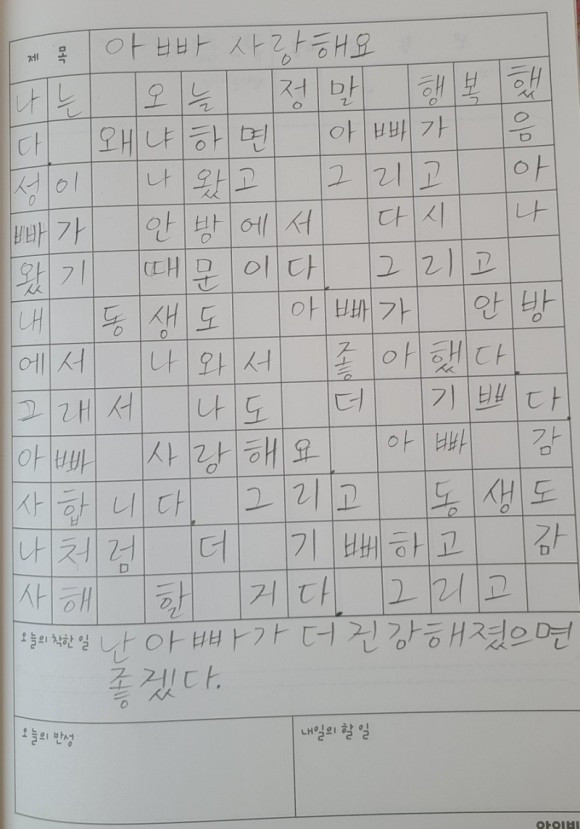 제 목 아빠 사랑해요
나는 오늘 정말 행복했
다. 왜냐하면 아빠가 음
성이 나왔고 그리고 아
빠가 안방에서 다시 나
왔기 때문이다. 그리고
내 동생도 아빠가 안방
에서 나와서 좋아했다.
그래서 나도 더 기쁘다.
아빠 사랑해요. 아빠 감
사합니다. 그리고 동생도
나처럼 더 기뻐하고 감
사해 할 거다. 그리고
오늘의 착한 일 난 아빠가 더 긴강해졌으면
좋겠다.
오늘의 반성 내일의 할 일